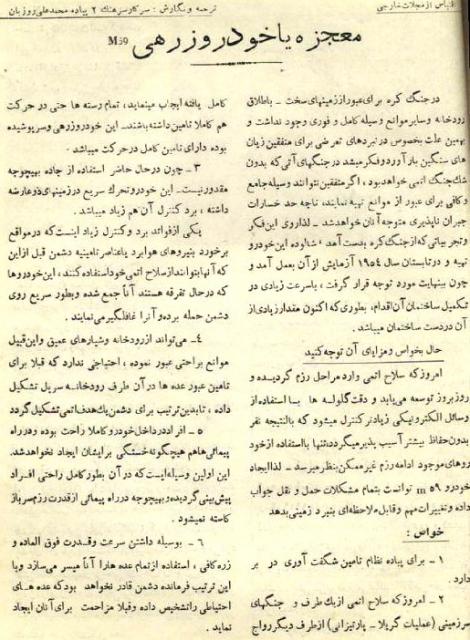 اقتباس از مجلات خارجی
ترجمه و نگارش : سرکار سرهنگ ۲ پیاده محمد علی روزبان
معجزه یا خودرو زرهی M59
در جنگ کره برای عبور از زمینهای سخت - باطلاق
رودخانه و سایر موانع وسیله کامل و فوری وجود نداشت و
بهمین علت بخصوص در نبردهای تعرضی برای متفقین زیان
های سنگین ببار آورد و فکر میشد در جنگهای آتی که بدون
شک جنگ اتمی خواهد بود ، اگر متفقین نتوانند وسیله جامع
و کافی برای عبور از موانع تهیه نمایند ، تا چه حد خسارات
جبران ناپذیری متوجه آنان خواهد شد - لذا روی این فکر
و تجربیاتی که از جنگ کره بدست آمد ، شالوده این خودرو
تهیه و در تابستان سال ۱۹۵۴ آزمایش از آن بعمل آمد و
چون بینهایت مورد توجه قرار گرفت ، با سرعت زیادی در
تکمیل ساختمان آن اقدام ، بطوری که اکنون مقدار زیادی از
آن در دست ساختمان میباشد .
حال بخواص و مزایای آن توجه کنید
امروز که سلاح اتمی وارد مراحل رزم گردیده و
روز بروز توسعه می یابد و دقت گلوله ها با استفاده از
وسائل الکترونیکی زیادتر کنترل میشود که بالنتیجه نفر
بدون حفاظ بیشتر آسیب پذیر میگردد ، تنها با استفاده از خود
روهای موجود ادامه رزم غیر ممکن بنظر میرسد - لذا ایجاد
خودرو m ۵۹ توانست بتمام مشکلات حمل و نقل جواب
داده و تغییرات مهم و قابل ملاحظه‌ای بنبرد زمینی بدهد
خواص :
۱ - برای پیاده نظام تامین شگفت آوری در بر
دارد .
۲ - امروز که سلاح اتمی از یک طرف و جنگهای
سرزمینی (عملیات گریلا - پارتیزانی) از طرف دیگر رواج
کامل یافته ایجاب مینماید ، تمام رسته ها حتی در حرکت
هم کاملا تامین داشته باشند - این خودرو زرهی و سرپوشیده
بوده دارای تامین کامل در حرکت میباشد .
۳ - چون در حال حاضر استفاده از جاده بهیچوجه
مقدور نیست - این خودرو تحرک سریع در زمینهای ذو عارضه
داشته ، برد کنترل آن هم زیاد میباشد .
یکی از فوائد برد و کنترل زیاد اینست که در مواقع
برخورد بنیروهای هوابرد یا عناصر تامینیه دشمن قبل از این
که آنها بتوانند از سلاح اتمی خود استفاده کنند ، این خودروها
که در حال تفرقه هستند آنا جمع شده و بطور سریع روی
دشمن حمله برده و آنرا غافلگیر مینمایند .
۴ - می تواند از رودخانه و شیارهای عمیق و این قبیل
موانع براحتی عبور نموده ، احتیاجی ندارد که قبلا برای
تامین عبور عده ها در آن طرف رودخانه سر پل تشکیل
داده ، تا بدین ترتیب برای دشمن یک هدف اتمی تشکیل گردد
۵ - افراد در داخل خودرو کاملا راحت بوده و در راه
پیمائی ها هم هیچگونه خستگی برایشان ایجاد نخواهد شد .
این اولین وسیله ایست که در آن بطور کامل راحتی افراد
پیش بینی گردیده و بهیچوجه در راه پیمائی از قدرت رزم سرباز
کاسته نمیشود .
۶ - بوسیله داشتن سرعت و قدرت فوق العاده و
زره کافی ، استفاده از تمام عده ها را آنا میسر میسازد و با
این ترتیب فرمانده دشمن قادر نخواهد بود که عده های
احتیاطی را تشخیص داده و قبلا مزاحمت برای آنان ایجاد
نماید .